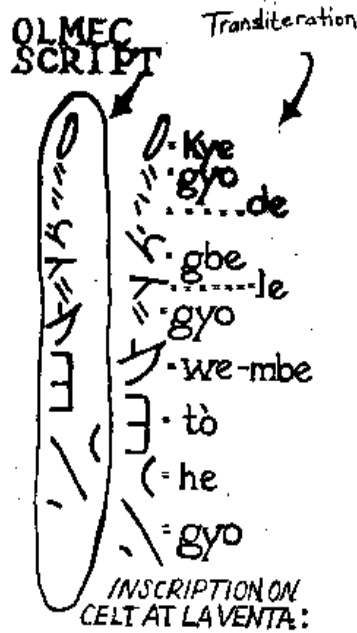 OLMEC
SCRIPT
Transliteration
= Kye
gyo
......de
= gbe
......le
gyo
= we-mbe
= tò
= he
= gyo
INSCRIPTION ON
CELT AT LA VENTA: